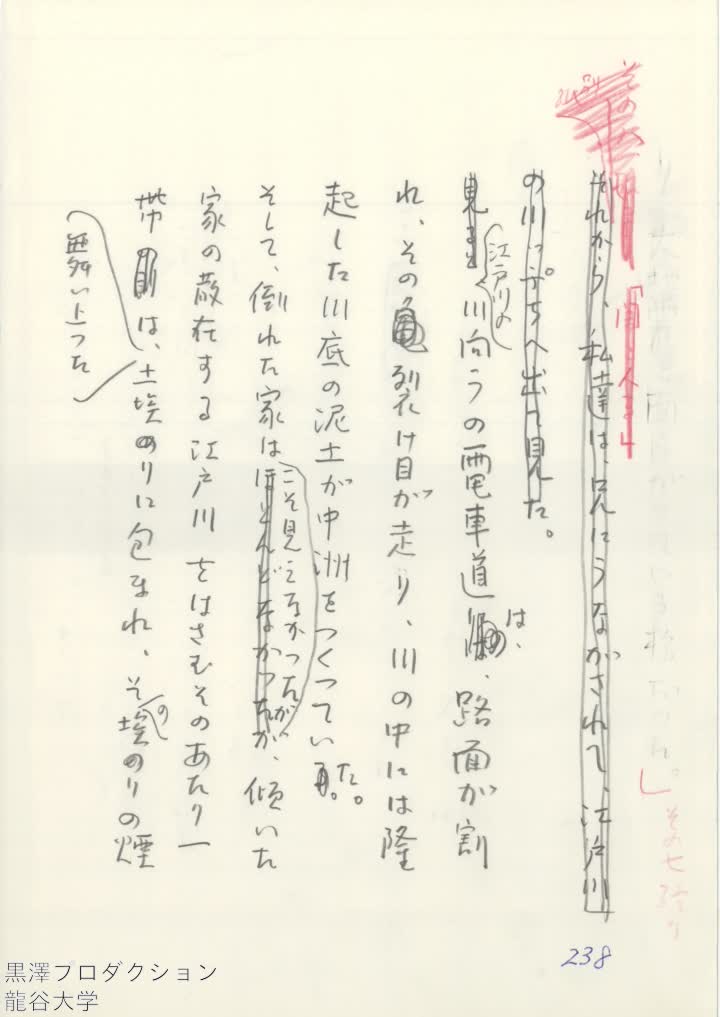 それから、私達は、兄にうながされて、江戸川
の川ぶちへ出て見た。
見ると
江戸川の
川向うの電車道は、路面が割
れ、その亀裂け目が走り、川の中には隆
起した川底の泥土が中洲をつくつていた。
そして、倒れた家は
こそ見えなかつたが
ほとんどなかつたが、傾いた
家の散在する江戸川をはさむそのあたり一
帯は、土埃のりに包まれ、その埃のりの煙
舞い上つた
238
黒澤プロダクション
龍谷大学